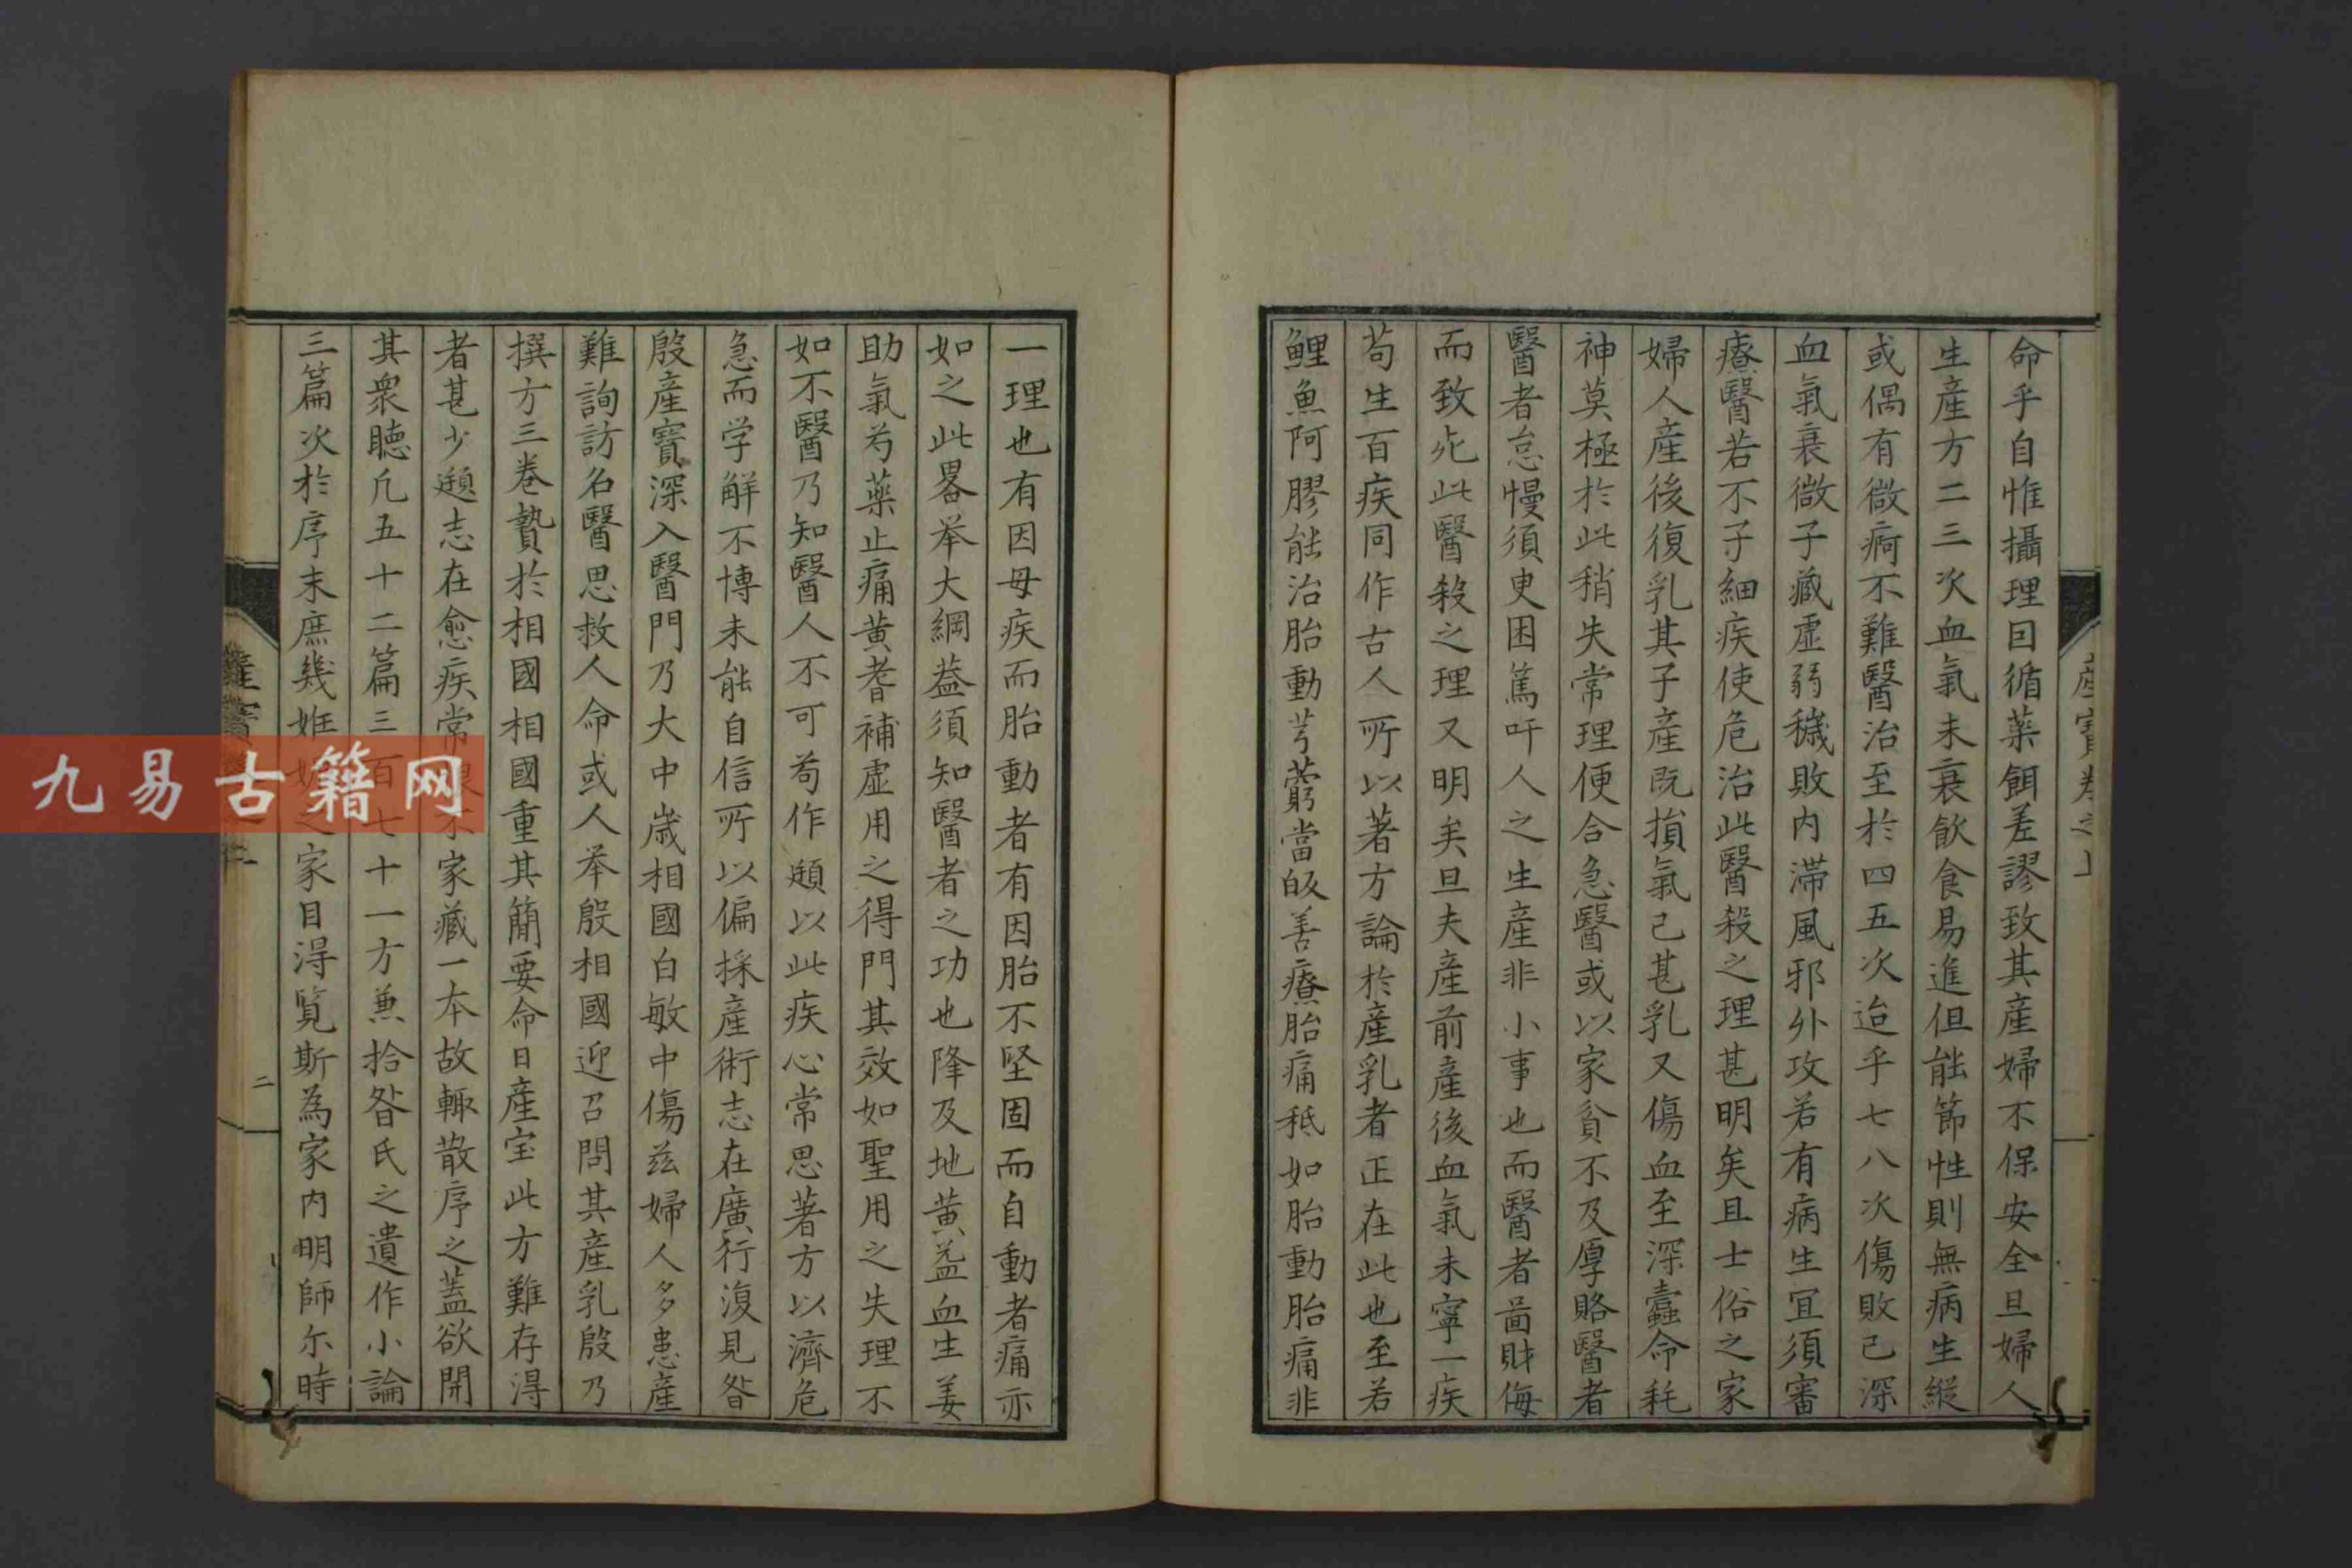 命乎自惟攝理囙循藥餌差謬致其產婦不保安全旦婦人
生產方二三次血氣未衰飲食易進但能節性則無病生縱
或偶有微痾不難醫治至於四五次迨乎七八次傷敗已深
血氣衰微子藏虛弱穢敗内滯風邪外攻若有病生冝須審
療醫若不子細疾使危治此醫殺之理甚明矣且士俗之家
婦人產後復乳其子產既損氣已甚乳又傷血至深蠧命耗
神莫極於此稍失常理便合急醫或以家貧不及厚賂醫者
醫者怠慢須臾困篤吁人之生產非小事也而醫者啚財侮
而致死此醫殺之理又明矣旦夫產前產後血氣未寧一疾
苟生百疾同作古人所以著方論於產乳者正在此也至若
鯉魚阿膠能治胎動芎藭當皈善療胎痛秪如胎動胎痛非
一理也有因母疾而胎動者有因胎不坚固而自動者痛亦
如之此畧举大綱葢須知醫者之功也降及地黄益血生姜
助氣芍藥止痛黄耆補虛用之得門其效如聖用之失理不
如不醫乃知醫人不可苟作題以此疾心常思著方以濟危
急而学觧不博未能自信所以偏採產術志在廣行復見昝
殷產寳深入醫門乃大中歲相國白敏中傷兹婦人多患產
難詢訪名醫思救人命或人举殷相國迎召問其產乳殷乃
撰方三卷贄於相國相國重其簡要命曰產宝此方難存得
者甚少題志在愈疾常恨不家藏一本故輙散序之蓋欲開
其衆聴凢五十二篇三百七十一方兼拾昝氏之遺作小論
三篇次於序末庶幾姙婦之家目得覧斯為家内明師尔時
產寳卷之上
二
九易古籍网